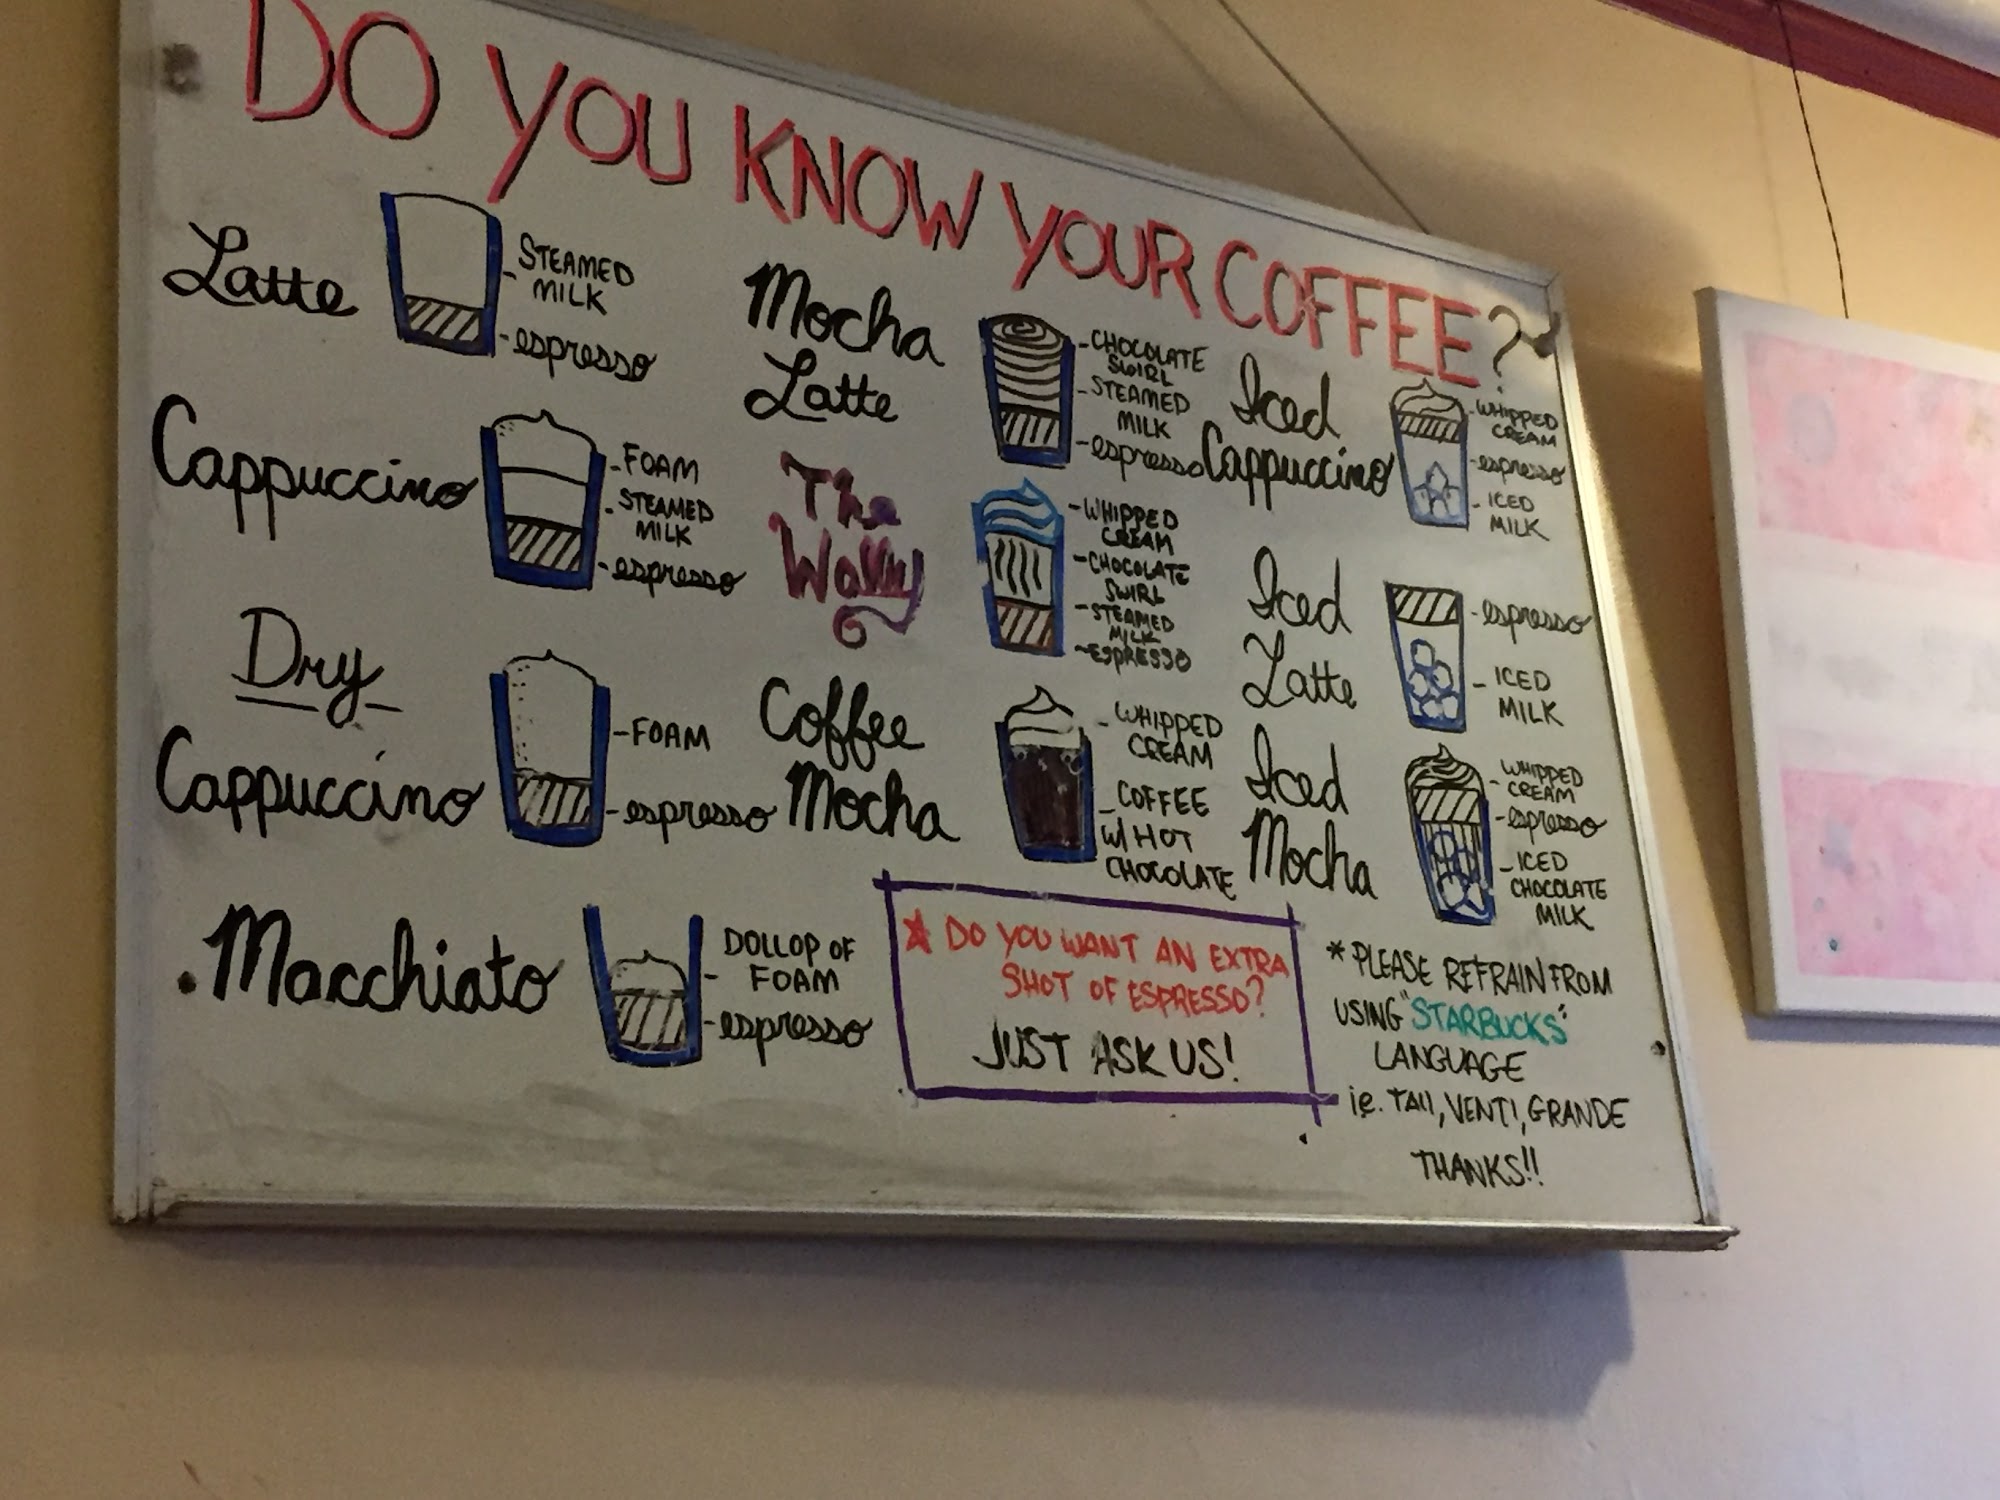 DO YOU KNOW YOUR COFFEE?
Latte
STEAMED
MILK
espresso
Cappuccino
FOAM
STEAMED
MILK
espresso
Dry
Cappuccino
FOAM
espresso
Macchiato
DOLLOP OF
FOAM
espresso
Mocha
Latte
CHOCOLATE
SWIRL
STEAMED
MILK
espresso
The
Wally
WHIPPED
CREAM
CHOCOLATE
SWIRL
STEAMED
MILK
ESPRESSO
Coffee
Mocha
WHIPPED
CREAM
COFFEE
W/ HOT
CHOCOLATE
Iced
Cappuccino
WHIPPED
CREAM
espresso
ICED
MILK
Iced
Latte
espresso
ICED
MILK
Iced
Mocha
WHIPPED
CREAM
espresso
ICED
CHOCOLATE
MILK
DO YOU WANT AN EXTRA
SHOT OF ESPRESSO?
JUST ASK US!
*PLEASE REFRAIN FROM
USING "STARBUCKS"
LANGUAGE
ie. TAll, VENTI, GRANDE
THANKS!!